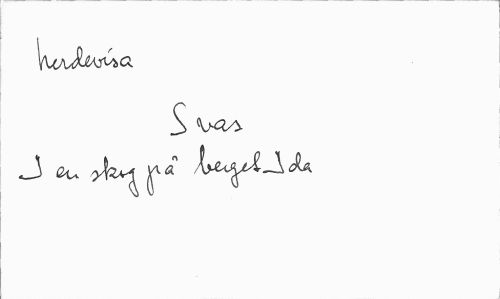 herdevisa
S vas
I en skog på berget Ida